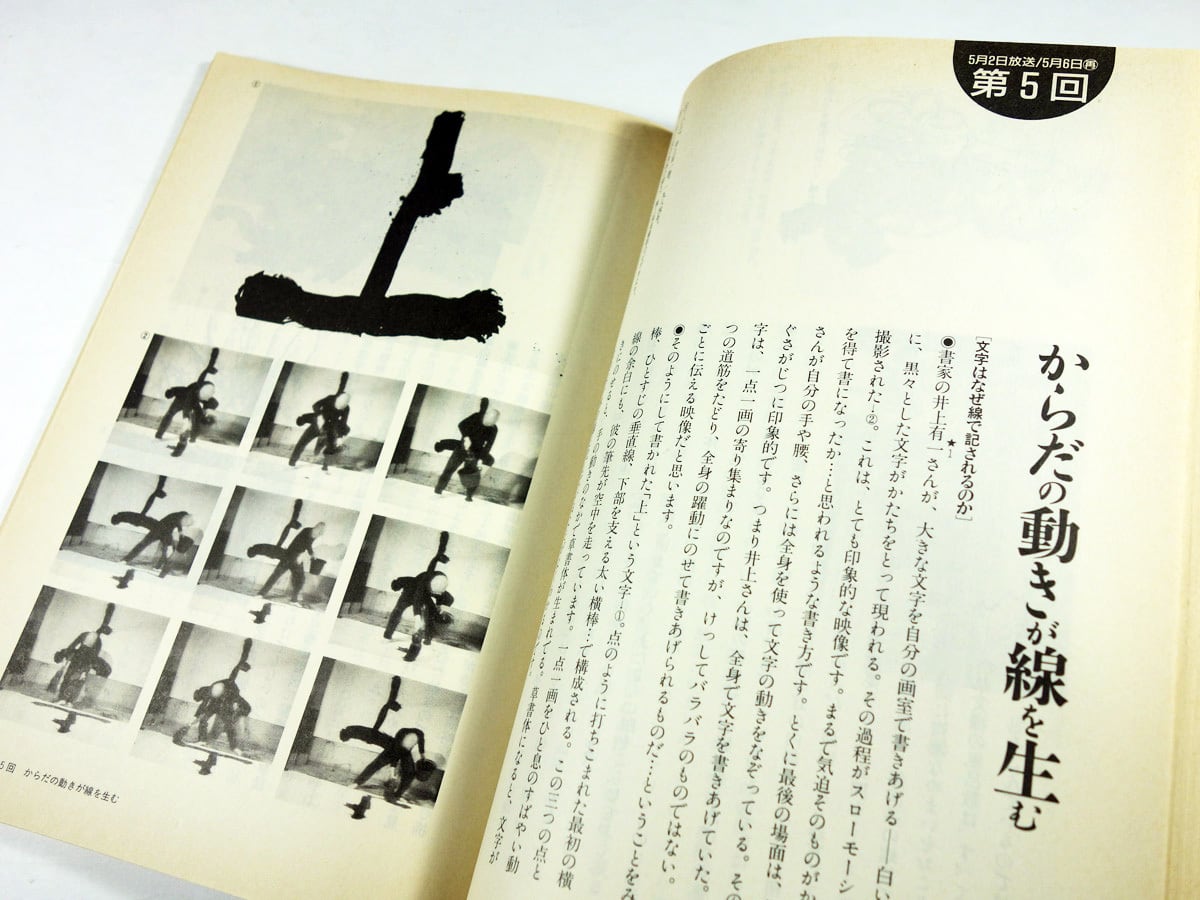 ①
上
②
5回 からだの動きが線を生む
5月2日放送/5月6日㊢
第5回
からだの動きが線を生む
[文字はなぜ線で記されるのか]
●書家の井上有一さんが、大きな文字を自分の画室で書きあげる――白い
★1
に、黒々とした文字がかたちをとって現われる。その過程がスローモーシ
撮影された→②。これは、とても印象的な映像です。まるで気迫そのものがか
を得て書になったか…と思われるような書き方です。とくに最後の場面は、
さんが自分の手や腰、さらには全身を使って文字の動きをなぞっている。その
ぐさがじつに印象的です。つまり井上さんは、全身で文字を書きあげていた。
字は、一点一画の寄り集まりなのですが、けっしてバラバラのものではない。
つの道筋をたどり、全身の躍動にのせて書きあげられるものだ…ということをみ
ごとに伝える映像だと思います。
●そのようにして書かれた「上」という文字→①。点のように打ちこまれた最初の横
棒、ひとすじの垂直線、下部を支える太い横棒…で構成される。この三つの点と
線の余白にも、彼の筆先が空中を走っています。一点一画をひと息のすばやい動
きにのせると、手の動きのなかから草書体が生まれてくる。草書体になると、文字が